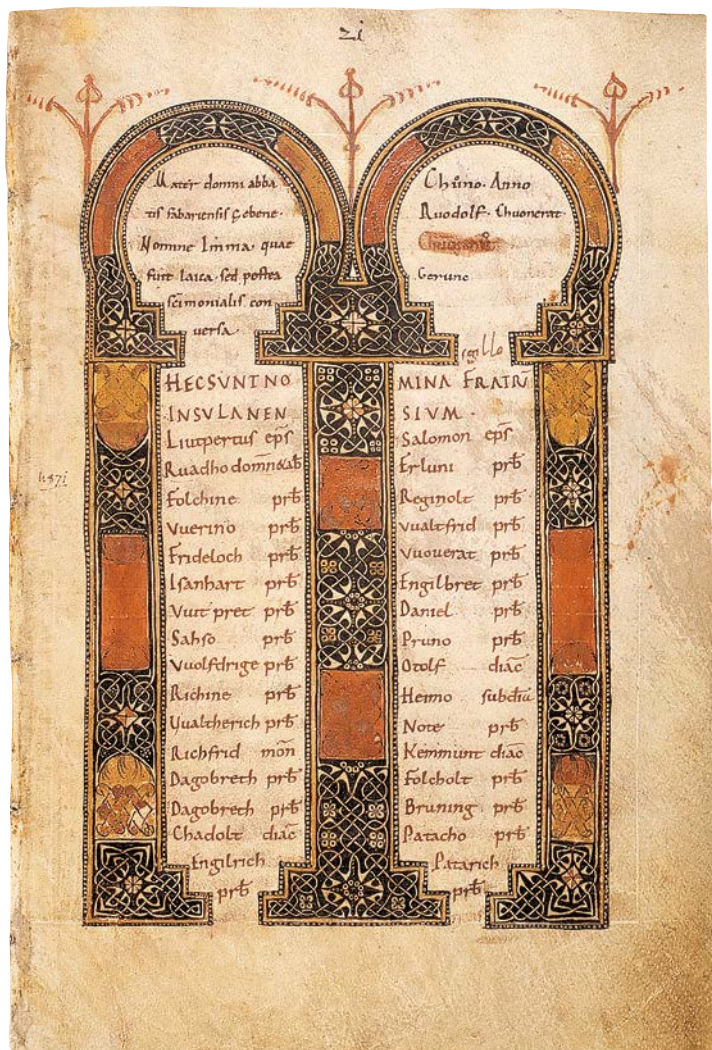 zi
Mater domni abba
tis fabariensis ç ebene.
Nomine Imma. quae
fuit laica. sed postea
scimonialis con
versa
HEC SVNT NO
INSVLANEN
Liutpertus eps̄
Ruadho domn&ab
Folchine prb̄
Vuerino prb̄
Frideloch prb̄
Isanhart prb̄
Vuit pret prb̄
Sahso prb̄
Vuolfdrige prb̄
Richine prb̄
Vualtherich prb̄
Richfrid mon̄
Dagobreth prb̄
Dagobreth prb̄
Chadolt diac̄
Engilrich
prb̄
Chůno. Anno
Ruodolf. Chuonerat.
Gerune
MINA FRATRŪ
SIVM.
Salomon eps̄
Erluni prb̄
Reginolt prb̄
vualtfrid prb̄
Vuouerat prb̄
Engilbret prb̄
Daniel prb̄
Pruno prb̄
Otolf diac̄
Heimo subdiā
Note prb̄
Kemmunt diac̄
Folcholt prb̄
Bruning prb̄
Patacho prb̄
Patarich
prb̄